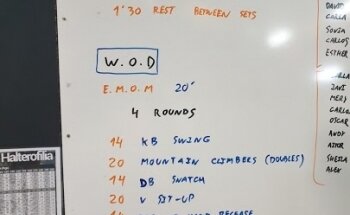 1'30 REST BETWEEN SETS
W.O.D
E.M.O.M 20'
4 ROUNDS
14 KB SWING
20 MOUNTAIN CLIMBERS (DOUBLES)
14 DB SNATCH
20 V SIT-UP
14 RELEASE
DAVID
CARLA
SONIA
CARLOS
ESTHER
CARLA
JAVI
MERY
CARLOS
OSCAR
ANDY
AITOR
SHEILA
ALEX
Halterofilia